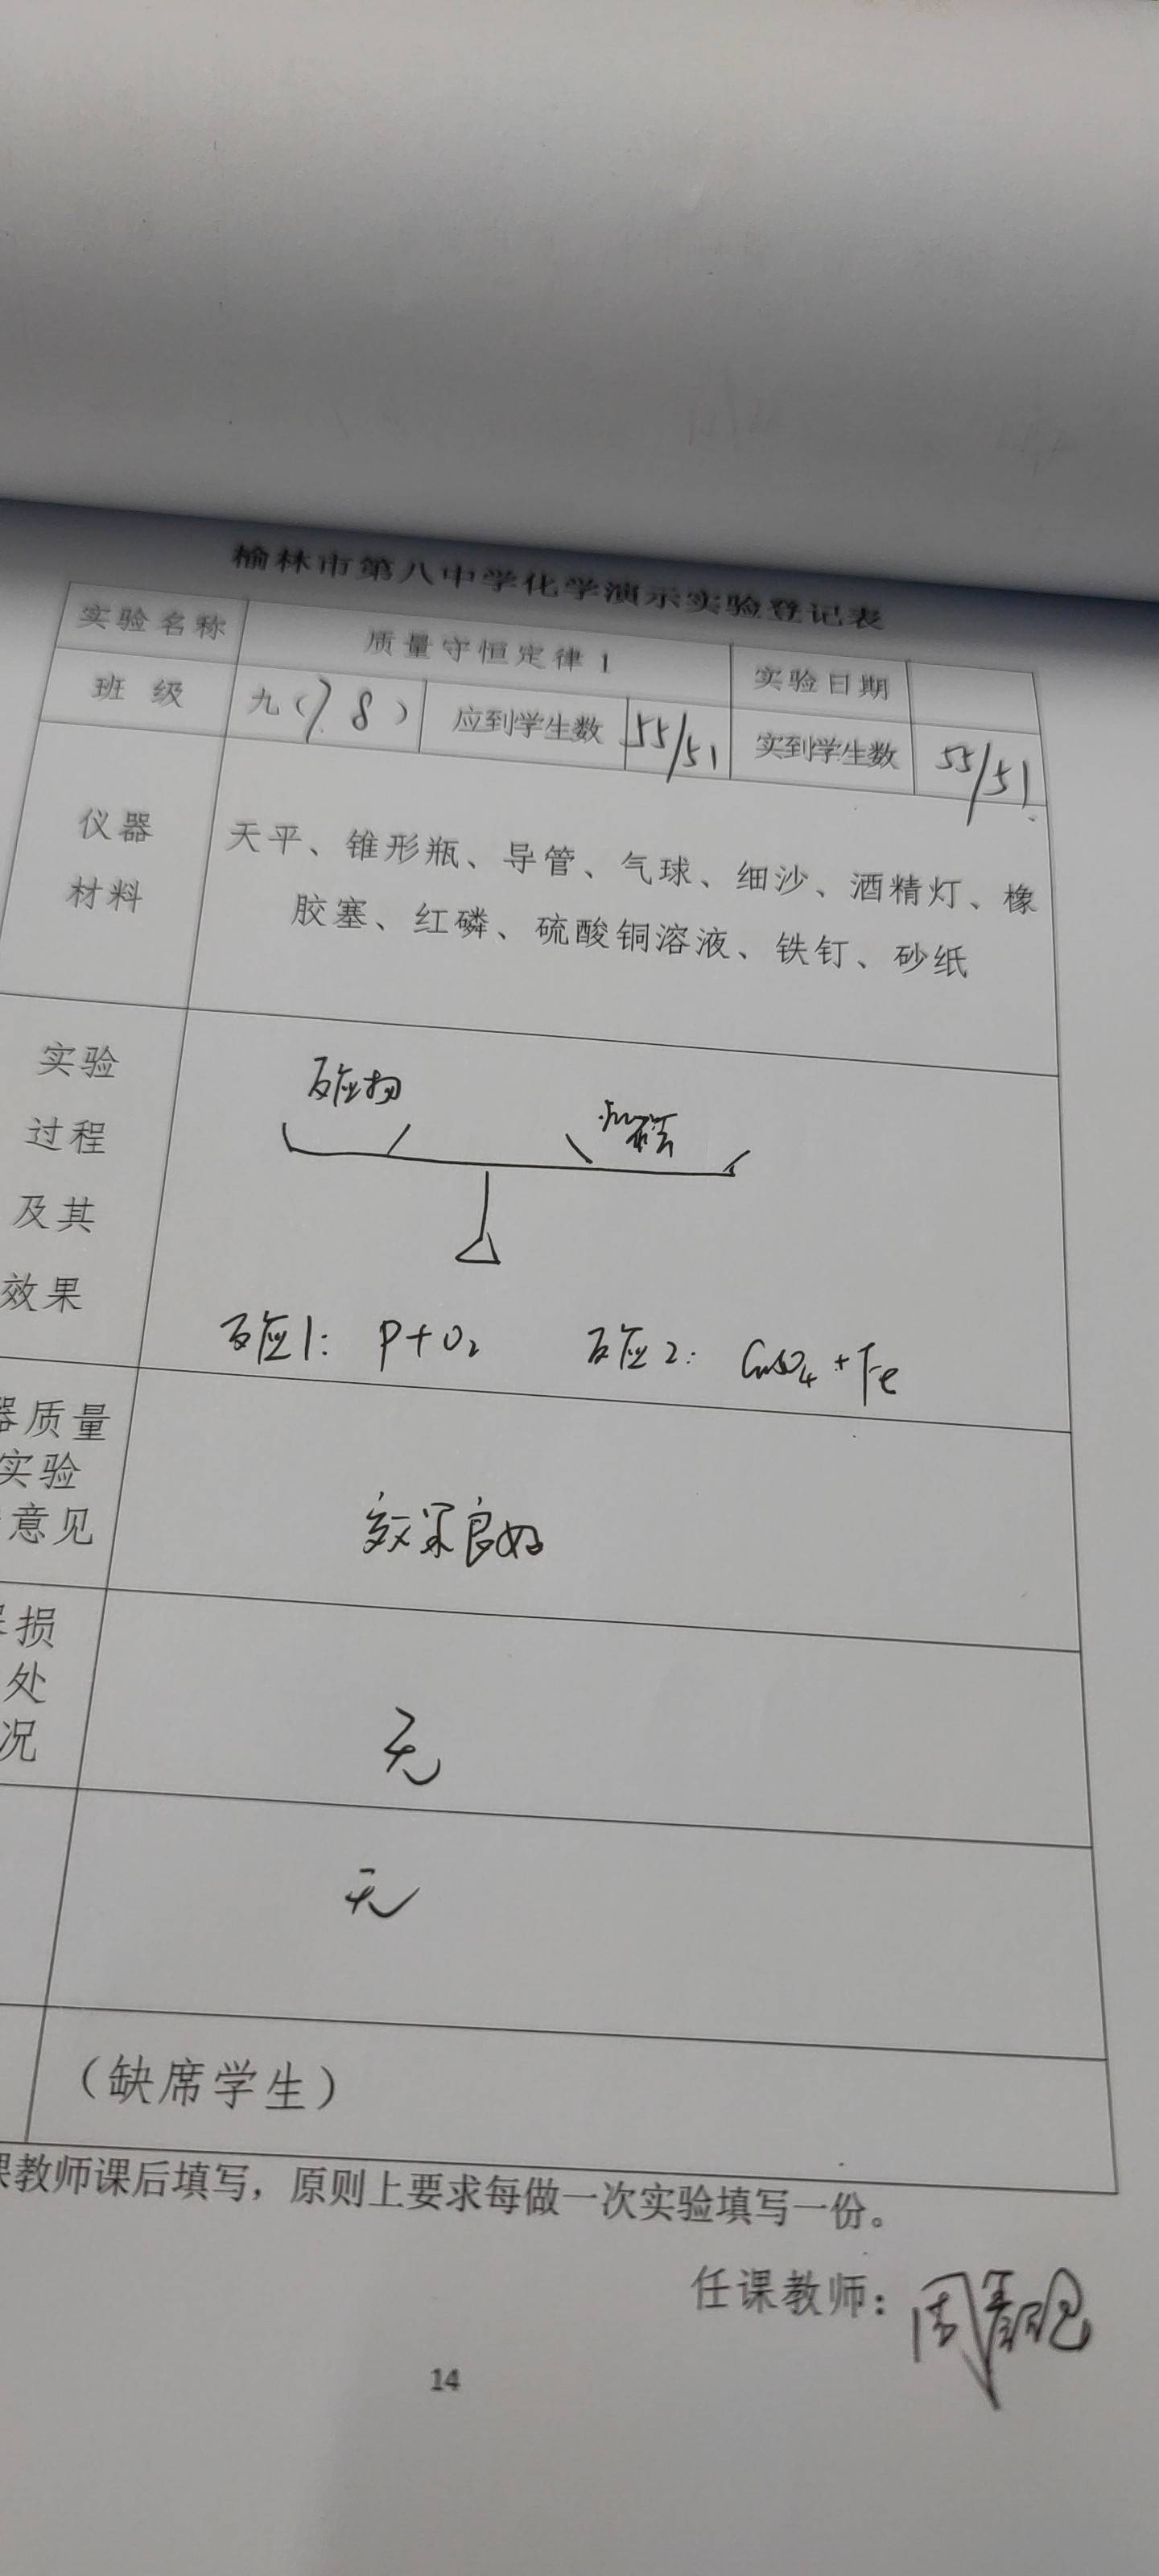 榆林市第八中学化学演示实验登记表
实验名称 质量守恒定律1 实验日期
班 级 九(7.8) 应到学生数 55/51 实到学生数 55/51
仪器
材料
天平、锥形瓶、导管、气球、细沙、酒精灯、橡
胶塞、红磷、硫酸铜溶液、铁钉、砂纸
实验
过程
及其
效果
反应物
反应1: P+O₂ 反应2: CuSO₄+Fe
器质量
实验
意见
效果良好
损
处
况
无
无
(缺席学生)
课教师课后填写，原则上要求每做一次实验填写一份。
任课教师: 周
14